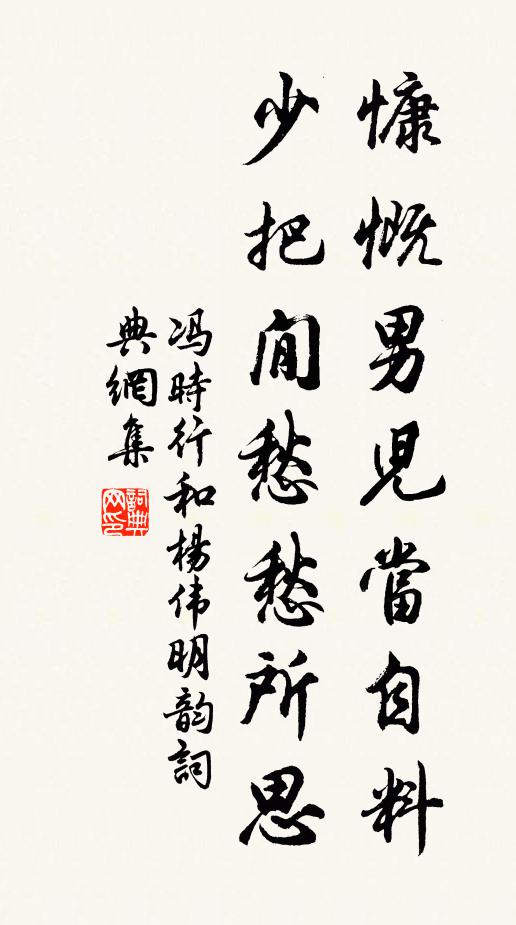 慷慨男児當自料
少把閒愁愁所思
冯時行和楊伟明韵詞
典網集
詞典网印